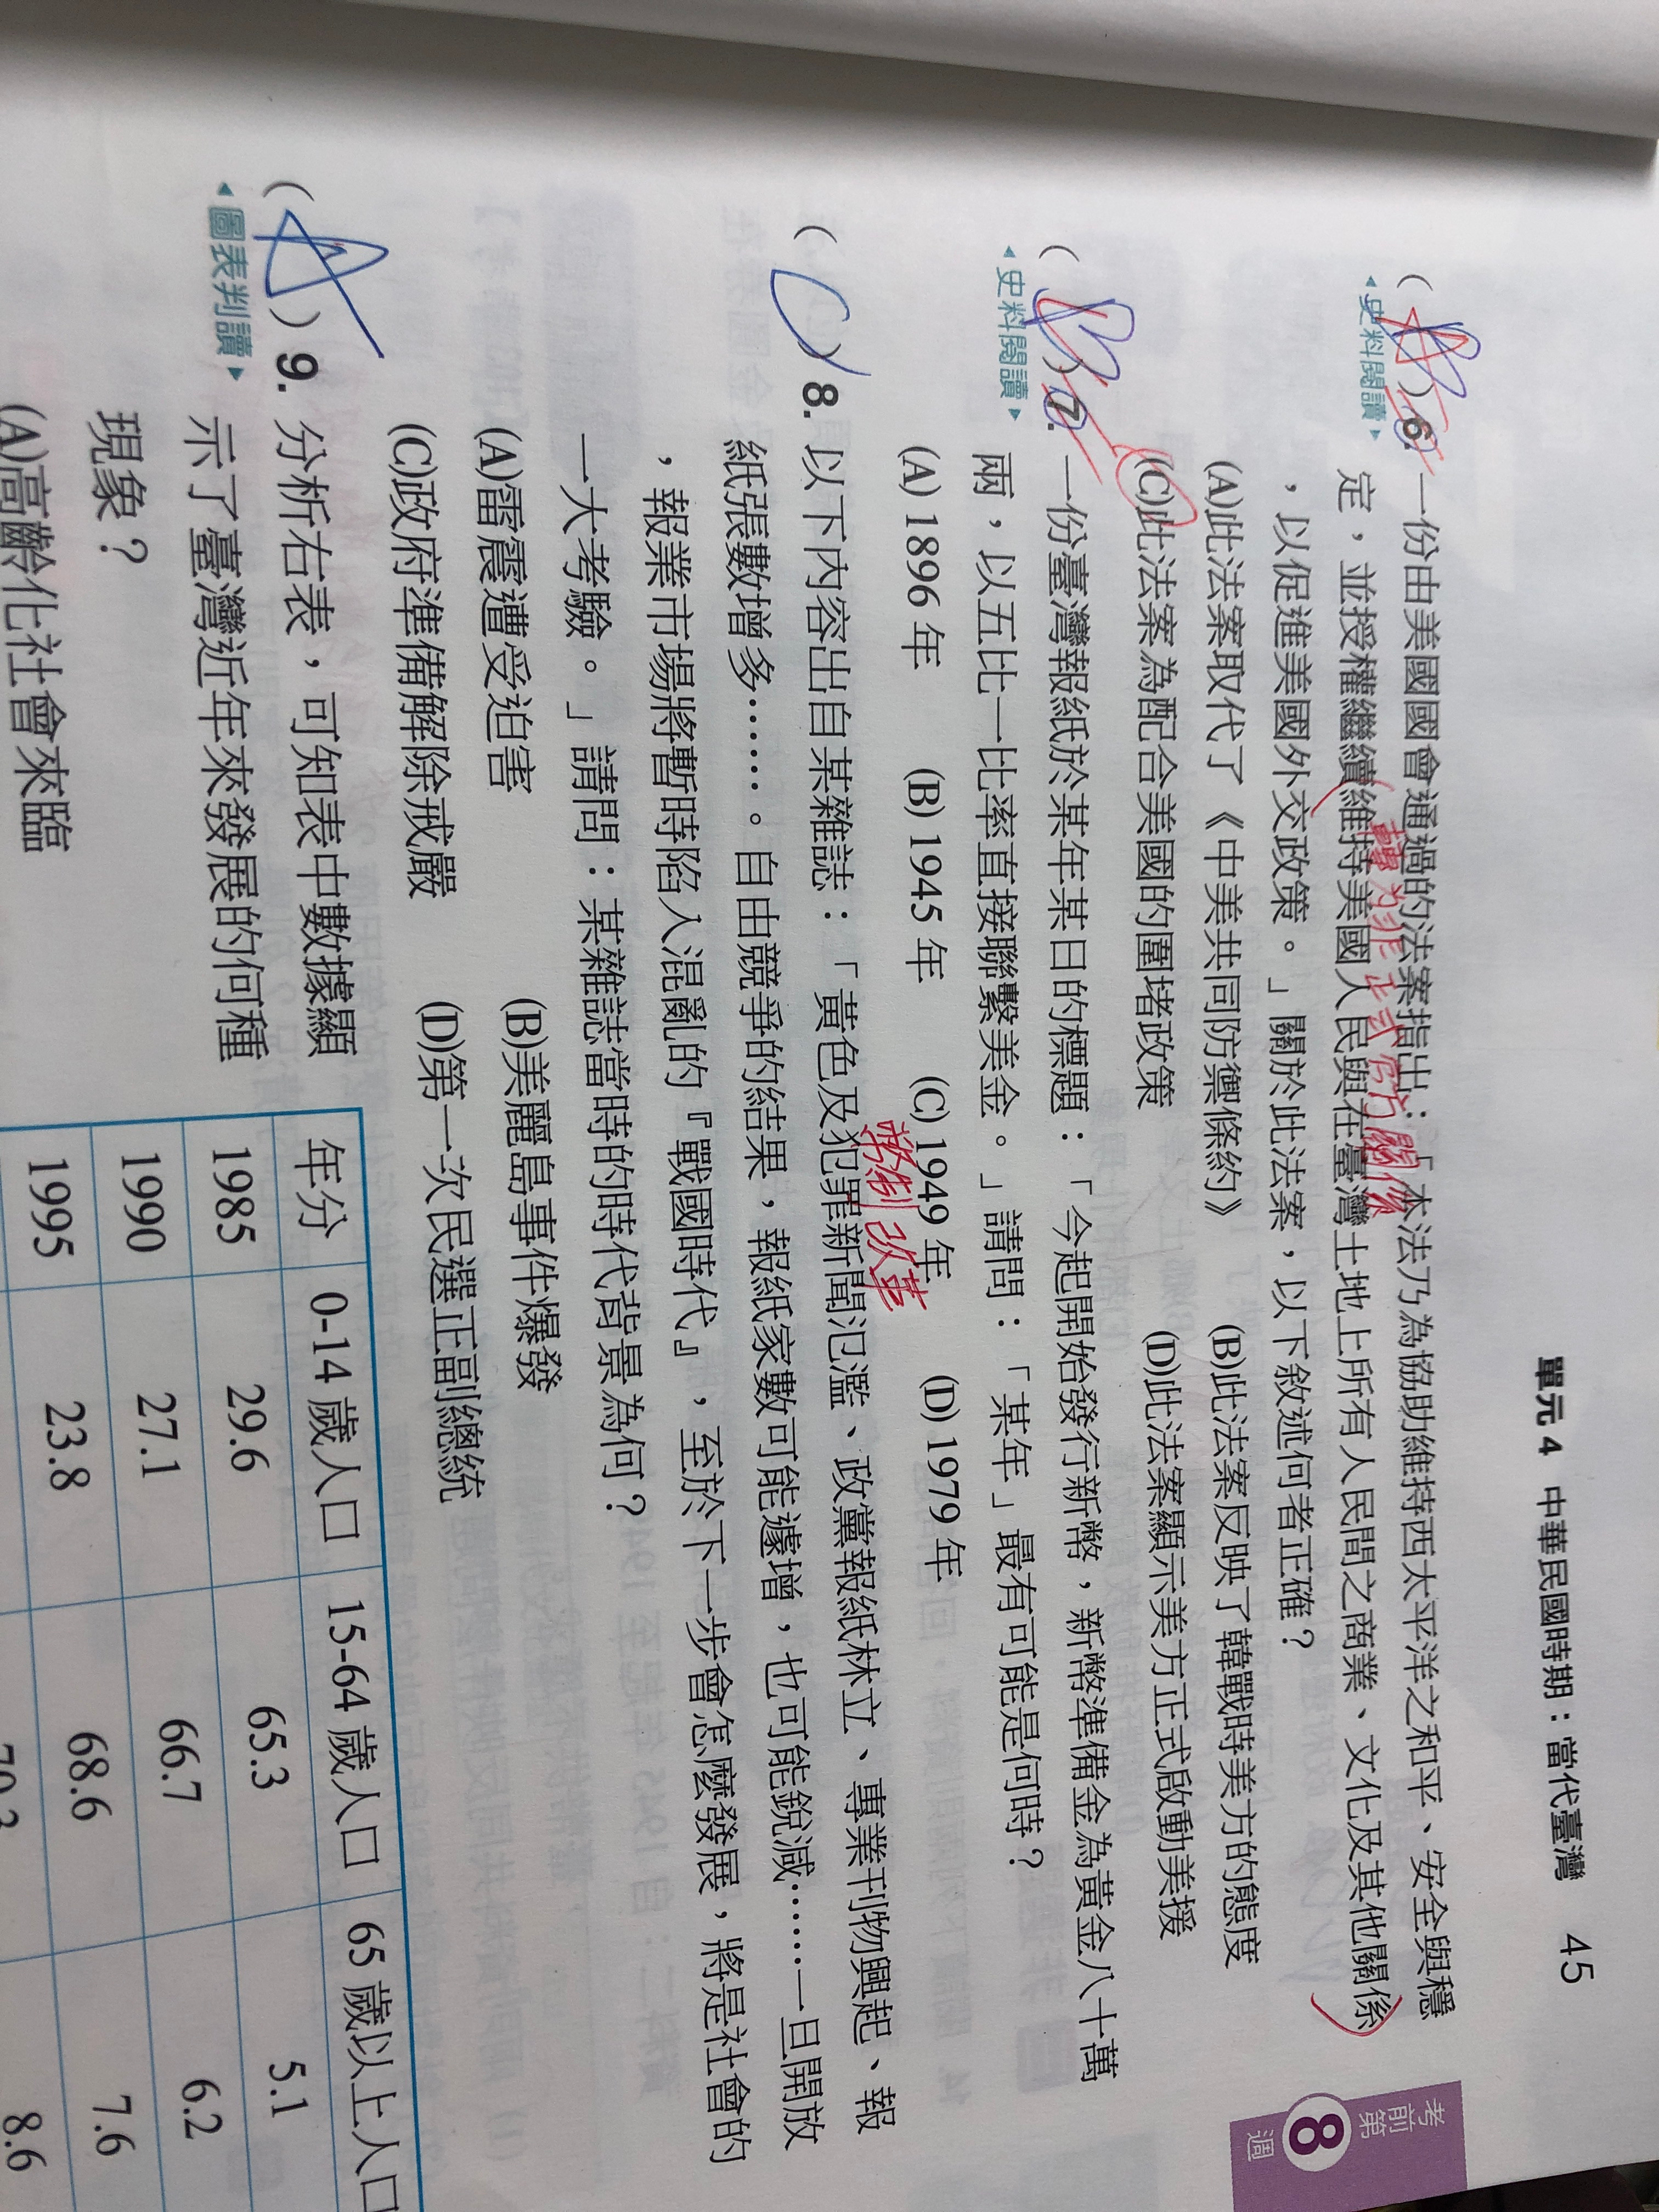 單元 4 中華民國時期：當代臺灣 45
考前第 8 週
( A ) 6. 一份由美國國會通過的法案指出：「本法乃為協助維持西太平洋之和平、安全與穩
◂史料閱讀▸
轉為非正式官方關係
定，並授權繼續維持美國人民與在臺灣土地上所有人民間之商業、文化及其他關係
，以促進美國外交政策。」關於此法案，以下敘述何者正確？
(A)此法案取代了《中美共同防禦條約》 (B)此法案反映了韓戰時美方的態度
(C)此法案為配合美國的圍堵政策 (D)此法案顯示美方正式啟動美援
( ) 7. 一份臺灣報紙於某年某日的標題：「今起開始發行新幣，新幣準備金為黃金八十萬
◂史料閱讀▸
兩，以五比一比率直接聯繫美金。」請問：「某年」最有可能是何時？
(A) 1896 年 (B) 1945 年 (C) 1949 年 (D) 1979 年
幣制改革
( C ) 8. 以下內容出自某雜誌：「黃色及犯罪新聞氾濫、政黨報紙林立、專業刊物興起、報
紙張數增多……。自由競爭的結果，報紙家數可能遽增，也可能銳減……一旦開放
，報業市場將暫時陷入混亂的『戰國時代』，至於下一步會怎麼發展，將是社會的
一大考驗。」請問：某雜誌當時的時代背景為何？
(A)雷震遭受迫害 (B)美麗島事件爆發
(C)政府準備解除戒嚴 (D)第一次民選正副總統
( A ) 9. 分析右表，可知表中數據顯
◂圖表判讀▸
示了臺灣近年來發展的何種
現象？
(A)高齡化社會來臨
年分 0-14 歲人口 15-64 歲人口 65 歲以上人口
1985 29.6 65.3 5.1
1990 27.1 66.7 6.2
1995 23.8 68.6 7.6
8.6